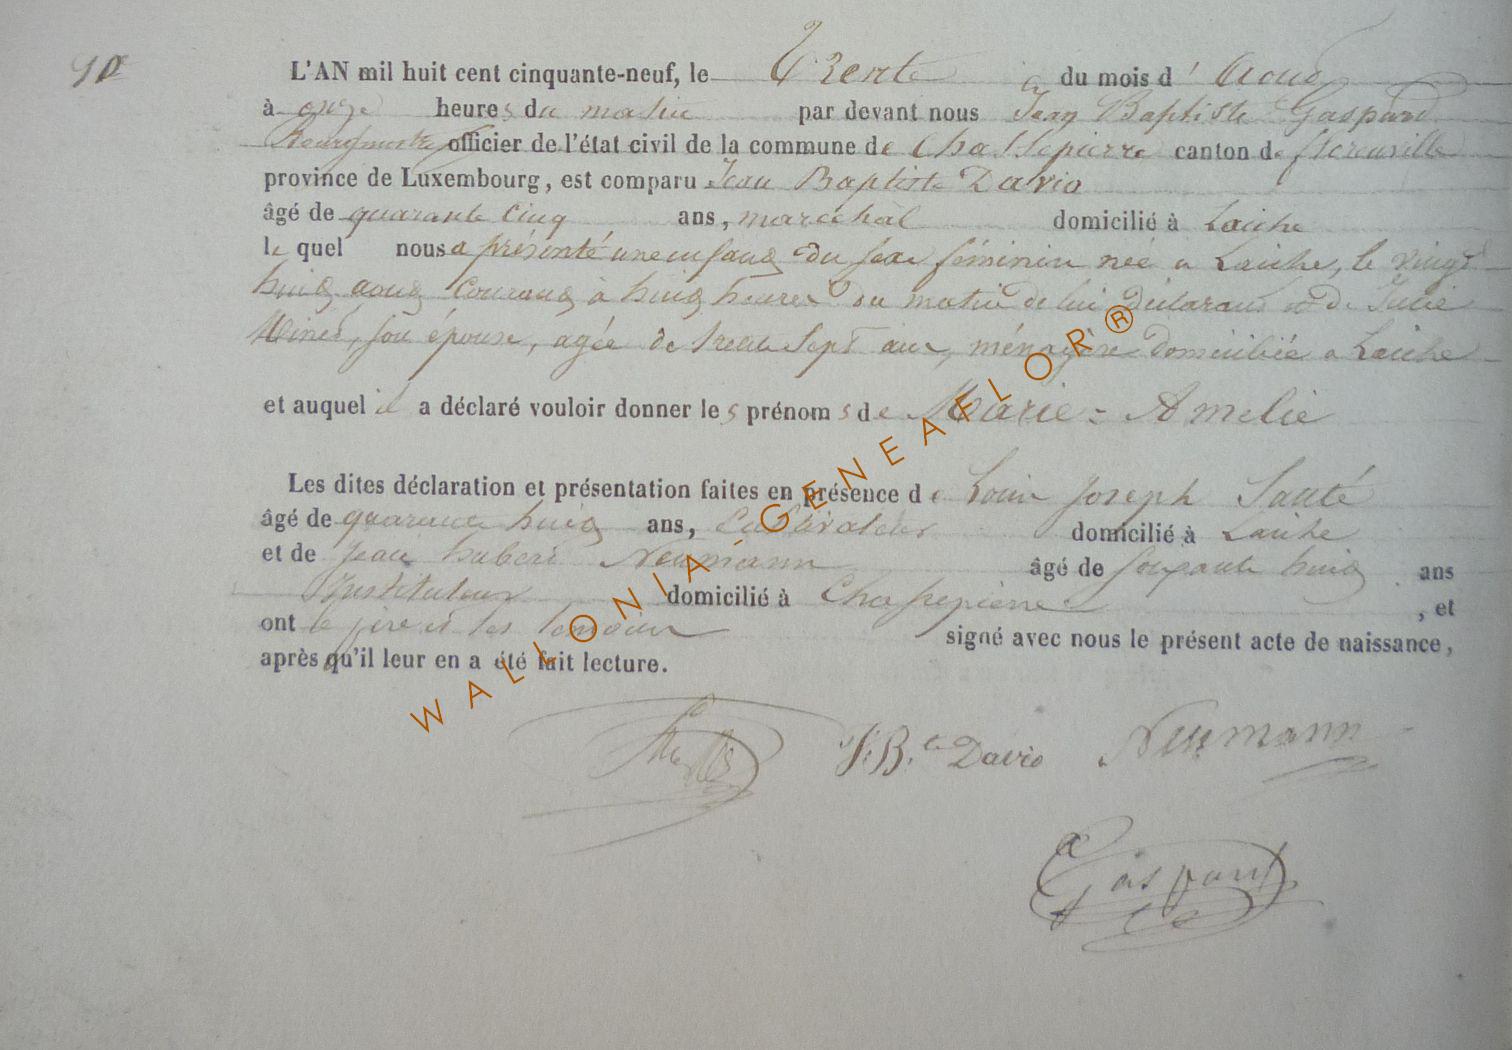 L'AN mil huit cent cinquante-neuf, le Trente du mois d' Aout
à onze heures du matin par devant nous Jean Baptiste Gaspard
Bourgmestre officier de l'état civil de la commune de Chassepierre canton de florenville
province de Luxembourg, est comparu Jean Baptiste Davio
âgé de quarante cinq ans, maréchal domicilié à Laiche
le quel nous a présenté une enfant du sexe féminin née a Laiche, le vingt
huit aout Courant à huit heures du matin de lui Déclarant et de Julie
son épouse, agée de trente Sept ans, ménagère domiciliée a Laiche
et auquel il a déclaré vouloir donner les prénoms de Marie = Amelie
Les dites déclaration et présentation faites en présence de Louis Joseph Santé
âgé de quarante huit ans, Cultivateur domicilié à Laiche
et de Jean hubert Neumann âgé de soixante huit ans
Instituteur domicilié à Chassepierre , et
ont le père et les temoins signé avec nous le présent acte de naissance,
après qu'il leur en a été fait lecture.
J. B.te Davio Neumann
Gaspard
WALLONIA-GENEAFLOR®